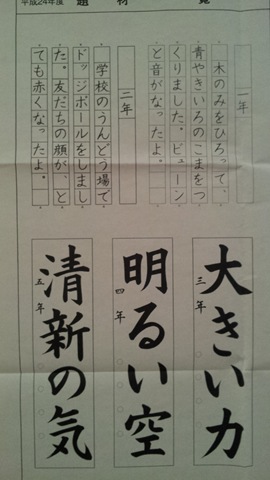 平成24年度
一年
木のみをひろって、
青やきいろのこまをつ
くりました。ビューン
と音がなったよ。
二年
学校のうんどう場で
ドッジボールをしまし
た。友だちの顔が、と
ても赤くなったよ。
大きい力
三年
明るい空
四年
清新の気
五年